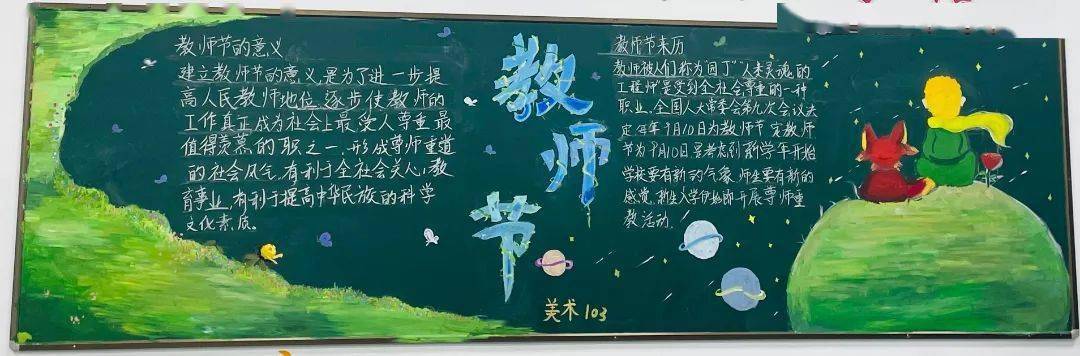 教师节的意义
建立教师节的意义,是为了进一步提
高人民教师地位,逐步使教师的
工作真正成为社会上最受人尊重最
值得羡慕的职之一.形成尊师重道
的社会风气.有利于全社会关心教
育事业,有利于提高中华民族的科学
文化素质。
教
师
节
美术 103
教师节来历
教师被人们称为"园丁""人类灵魂的
工程师"是受到全社会尊重的一种
职业.全国人大常委会第九次会议决
定每年9月10日为教师节.定教师
节为9月10日是考虑到新学年开始
学校要有新的气象.师生要有新的
感觉.新生入学伊始即开展尊师重
教活动.